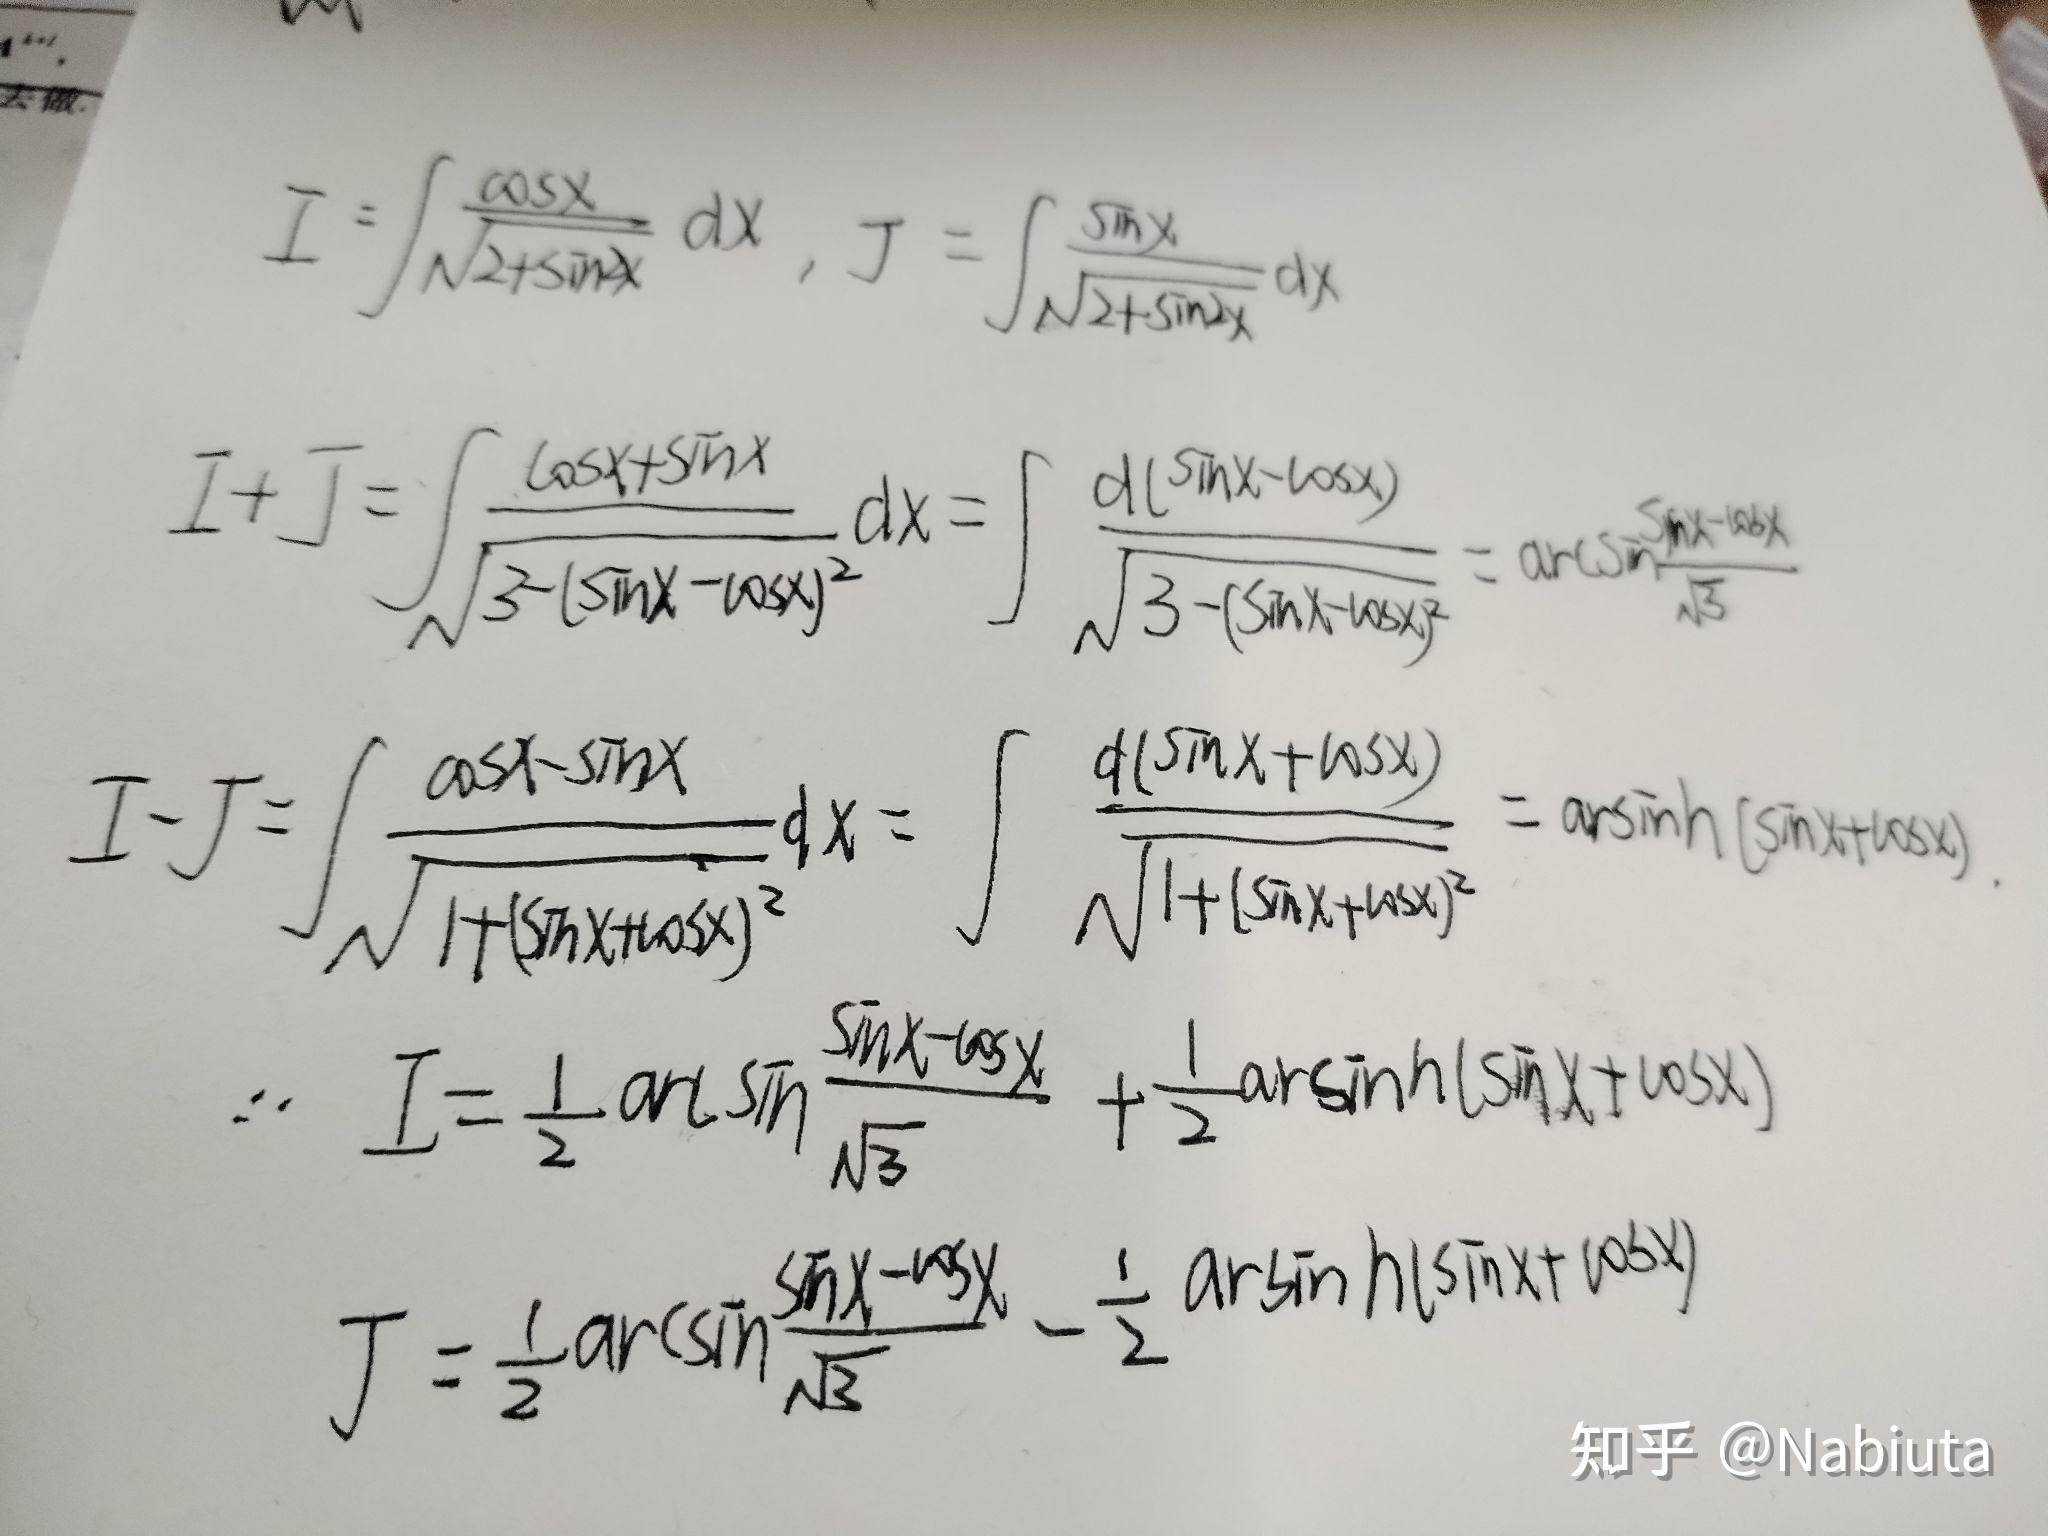 去做.
I = ∫ cosx/√(2+sin2x) dx , J = ∫ sinx/√(2+sin2x) dx
I+J = ∫ (cosx+sinx)/√(3-(sinx-cosx)²) dx = ∫ d(sinx-cosx)/√(3-(sinx-cosx)²) = arcsin (sinx-cosx)/√3
I-J = ∫ (cosx-sinx)/√(1+(sinx+cosx)²) dx = ∫ d(sinx+cosx)/√(1+(sinx+cosx)²) = arsinh(sinx+cosx).
∴ I = 1/2 arcsin (sinx-cosx)/√3 + 1/2 arsinh(sinx+cosx)
J = 1/2 arcsin (sinx-cosx)/√3 - 1/2 arsinh(sinx+cosx)
知乎 @Nabiuta